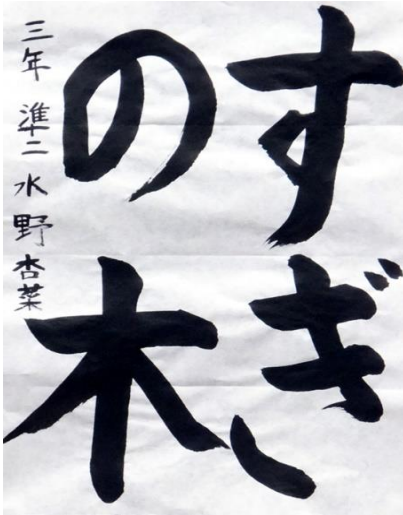 すぎ
の木
三年 準二 水野杏菜